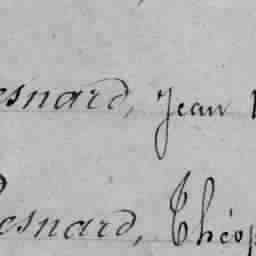 esnard, Jean
esnard, Théop